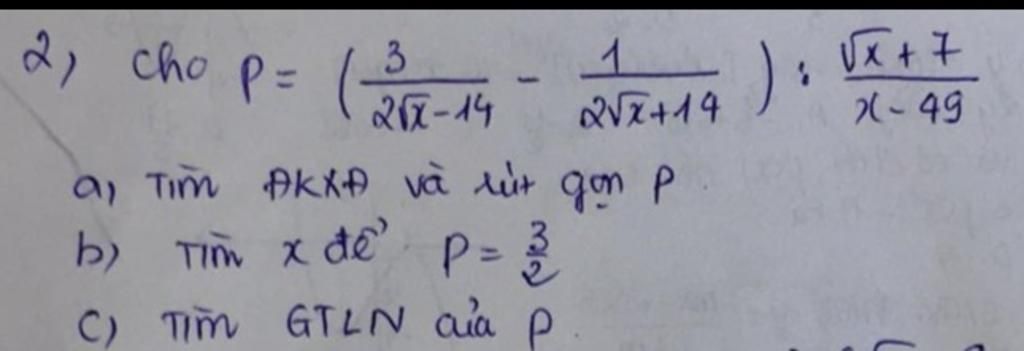 2) Cho P = ( 3/(2√x-14) - 1/(2√x+14) ) : (√x+7)/(x-49)
a) Tìm ĐKXĐ và rút gọn P.
b) Tìm x để P = 3/2
c) Tìm GTLN của P.